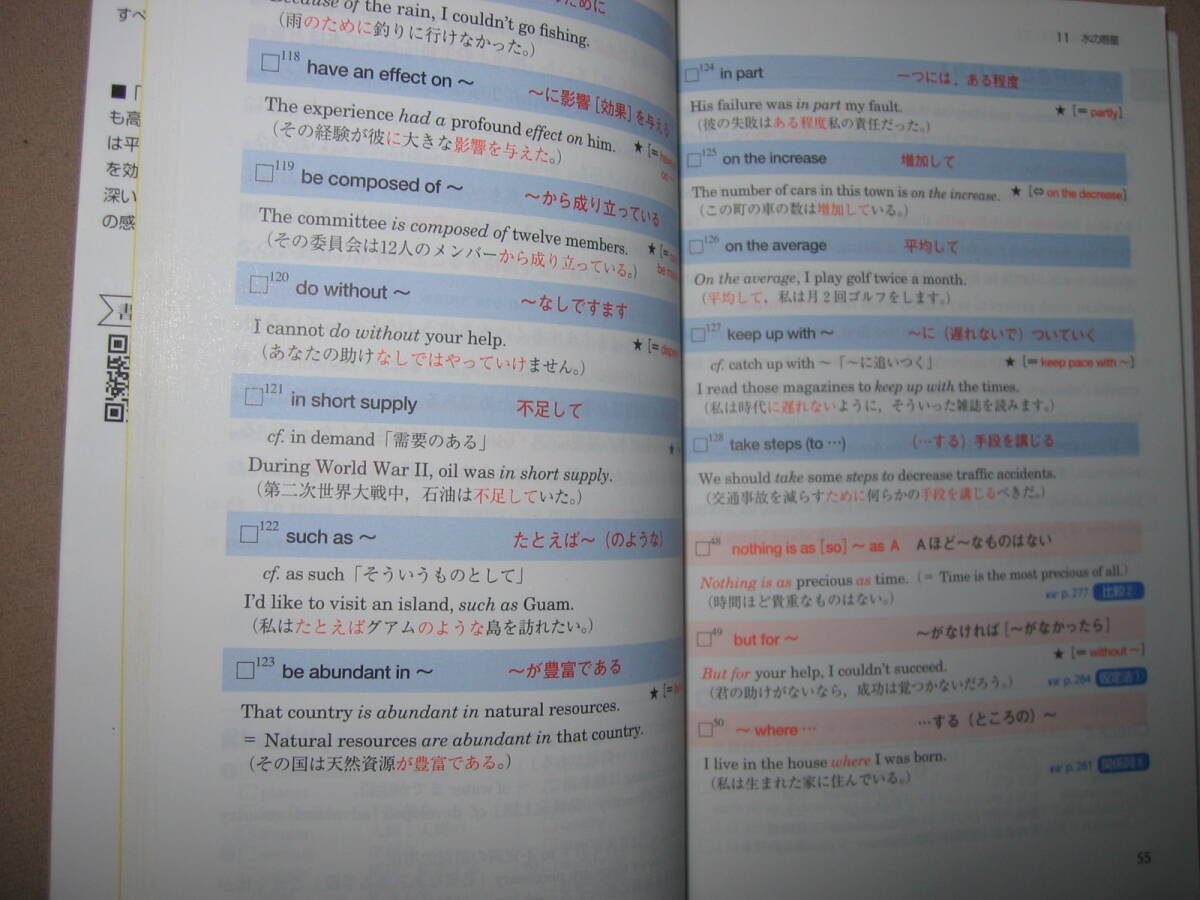 すべ
■「
も高
は平
を効
深い
の感
書
のために
Because of the rain, I couldn't go fishing.
（雨のために釣りに行けなかった。）
□118 have an effect on ～ ～に影響［効果］を与える
The experience had a profound effect on him. ★ [= have
on ～
（その経験が彼に大きな影響を与えた。）
□119 be composed of ～ ～から成り立っている
The committee is composed of twelve members. ★ [=
be
（その委員会は12人のメンバーから成り立っている。）
□120 do without ～ ～なしですます
I cannot do without your help. ★ [=
（あなたの助けなしではやっていけません。）
□121 in short supply 不足して
cf. in demand「需要のある」 ★
During World War II, oil was in short supply.
（第二次世界大戦中，石油は不足していた。）
□122 such as ～ たとえば～（のような）
cf. as such「そういうものとして」
I'd like to visit an island, such as Guam.
（私はたとえばグアムのような島を訪れたい。）
□123 be abundant in ～ ～が豊富である
★ [=
That country is abundant in natural resources.
= Natural resources are abundant in that country.
（その国は天然資源が豊富である。）
11 水の惑星
□124 in part 一つには，ある程度
His failure was in part my fault. ★ [= partly]
（彼の失敗はある程度私の責任だった。）
□125 on the increase 増加して
The number of cars in this town is on the increase. ★ [⇔ on the decrease]
（この町の車の数は増加している。）
□126 on the average 平均して
On the average, I play golf twice a month.
（平均して，私は月2回ゴルフをします。）
□127 keep up with ～ ～に（遅れないで）ついていく
cf. catch up with ～「～に追いつく」 ★ [= keep pace with ～]
I read those magazines to keep up with the times.
（私は時代に遅れないように，そういった雑誌を読みます。）
□128 take steps (to …) （…する）手段を講じる
We should take some steps to decrease traffic accidents.
（交通事故を減らすために何らかの手段を講じるべきだ。）
□48 nothing is as [so] ～ as A Aほど～なものはない
Nothing is as precious as time. (= Time is the most precious of all.)
（時間ほど貴重なものはない。） p.277 比較2
□49 but for ～ ～がなければ［～がなかったら］
★ [= without ～]
But for your help, I couldn't succeed.
（君の助けがないなら，成功は覚つかないだろう。） p.284 仮定法1
□50 ～ where … …する（ところの）～
I live in the house where I was born.
（私は生まれた家に住んでいる。） p.261
55